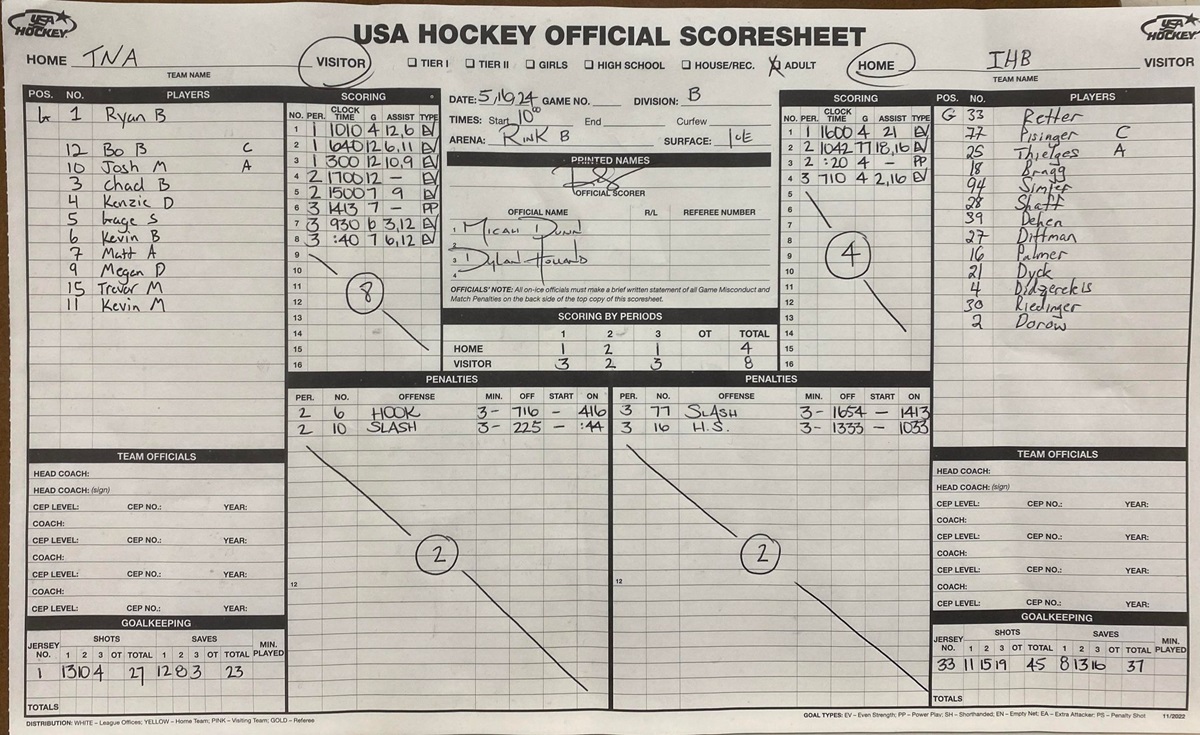 USA HOCKEY
USA HOCKEY OFFICIAL SCORESHEET
USA HOCKEY
HOME TNA VISITOR
TEAM NAME
☐ TIER I ☐ TIER II ☐ GIRLS ☐ HIGH SCHOOL ☐ HOUSE/REC. ☒ ADULT
HOME IHB VISITOR
TEAM NAME
POS. NO. PLAYERS
G 1 Ryan B
12 Bo B C
10 Josh M A
3 Chad B
4 Kenzie D
5 Gage S
6 Kevin B
7 Matt A
9 Megan D
15 Trevor M
11 Kevin M
SCORING
NO. PER. CLOCK TIME G ASSIST TYPE
1 1 1010 4 12,6 EV
2 1 640 12 6,11 EV
3 1 300 12 10,9 EV
4 2 1700 12 – EV
5 2 1500 7 9 EV
6 3 1413 7 – PP
7 3 930 6 3,12 EV
8 3 :40 7 6,12 EV
9
10
11
12
13
14
15
16
8
DATE: 5,16,24 GAME NO. DIVISION: B
TIMES: Start 10:00 End Curfew
ARENA: RINK B SURFACE: ICE
PRINTED NAMES
OFFICIAL SCORER
OFFICIAL NAME R/L REFEREE NUMBER
1 MICAH DUNN
2
3 DYLAN HOLLAND
4
OFFICIALS' NOTE: All on-ice officials must make a brief written statement of all Game Misconduct and
Match Penalties on the back side of the top copy of this scoresheet.
SCORING BY PERIODS
1 2 3 OT TOTAL
HOME 1 2 1 4
VISITOR 3 2 3 8
SCORING
NO. PER. CLOCK TIME G ASSIST TYPE
1 1 1600 4 21 EV
2 2 1042 77 18,16 EV
3 2 :20 4 – PP
4 3 710 4 2,16 EV
5
6
7
8
9
10
11
12
13
14
15
16
4
POS. NO. PLAYERS
G 33 Retter
77 Pisinger C
25 Thielges A
18 Bragg
94 Simler
28 Shaff
39 Dehen
27 Dittman
16 Palmer
21 Dyck
4 Didzerekis
30 Riedinger
2 Dorow
PENALTIES
PER. NO. OFFENSE MIN. OFF START ON
2 6 HOOK 3- 716 – 416
2 10 SLASH 3- 225 – :44
12
2
PENALTIES
PER. NO. OFFENSE MIN. OFF START ON
3 77 SLASH 3- 1654 – 1413
3 16 H.S. 3- 1333 – 1033
12
2
TEAM OFFICIALS
HEAD COACH:
HEAD COACH: (sign)
CEP LEVEL: CEP NO.: YEAR:
COACH:
CEP LEVEL: CEP NO.: YEAR:
COACH:
CEP LEVEL: CEP NO.: YEAR:
COACH:
CEP LEVEL: CEP NO.: YEAR:
GOALKEEPING
SHOTS SAVES
JERSEY NO. 1 2 3 OT TOTAL 1 2 3 OT TOTAL MIN. PLAYED
1 13 10 4 27 12 8 3 23
TOTALS
TEAM OFFICIALS
HEAD COACH:
HEAD COACH: (sign)
CEP LEVEL: CEP NO.: YEAR:
COACH:
CEP LEVEL: CEP NO.: YEAR:
COACH:
CEP LEVEL: CEP NO.: YEAR:
COACH:
CEP LEVEL: CEP NO.: YEAR:
GOALKEEPING
SHOTS SAVES
JERSEY NO. 1 2 3 OT TOTAL 1 2 3 OT TOTAL MIN. PLAYED
33 11 15 19 45 8 13 16 37
TOTALS
DISTRIBUTION: WHITE – League Offices; YELLOW – Home Team; PINK – Visiting Team; GOLD – Referee
GOAL TYPES: EV – Even Strength; PP – Power Play; SH – Shorthanded; EN – Empty Net; EA – Extra Attacker; PS – Penalty Shot 11/2022